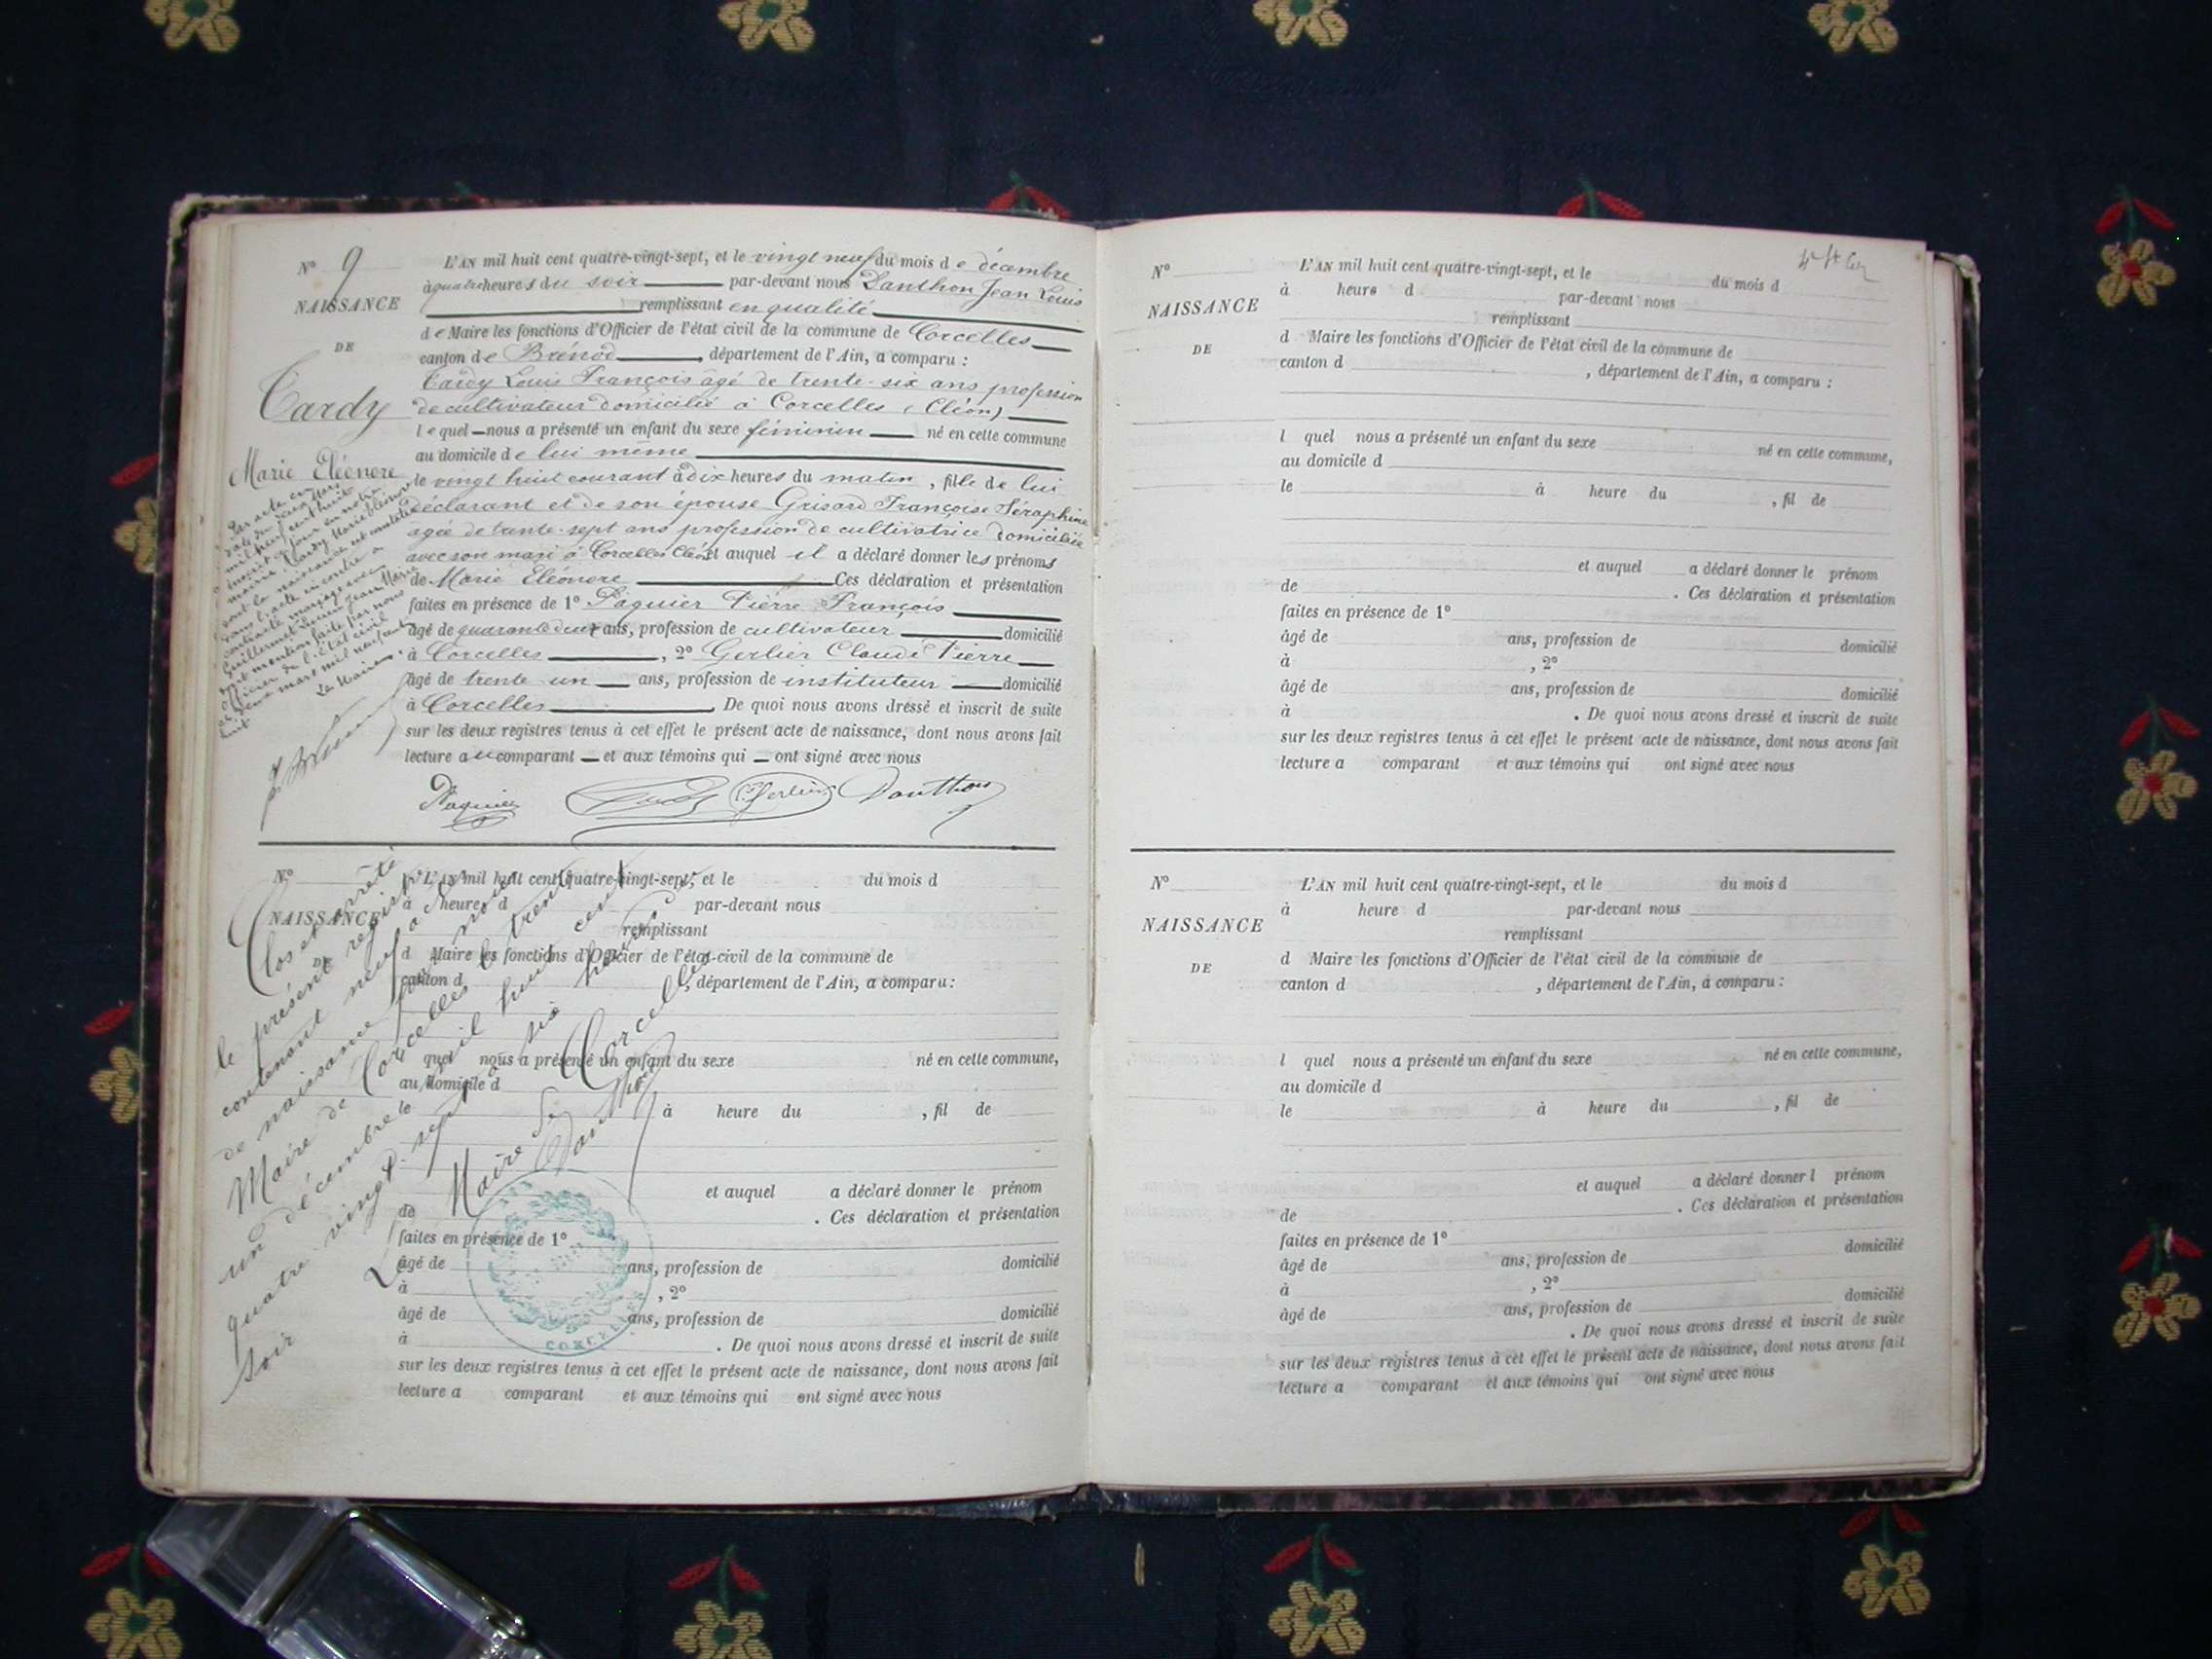 N° 9
NAISSANCE
DE
Tardy
Marie Eléonore
L'AN mil huit cent quatre-vingt-sept, et le vingt neuf du mois de décembre
à quatre heures du soir par-devant nous Danthon Jean Louis
remplissant en qualité
de Maire les fonctions d'Officier de l'état civil de la commune de Corcelles
canton de Brénod, département de l'Ain, a comparu :
Tardy Louis François âgé de trente-six ans profession
de cultivateur domicilié à Corcelles (Cléon)
lequel nous a présenté un enfant du sexe féminin né en cette commune
au domicile de lui même
le vingt huit courant à dix heures du matin, fille de lui
déclarant et de son épouse Grisard Françoise Séraphine
agée de trente-sept ans profession de cultivatrice domiciliée
avec son mari à Corcelles Cléon et auquel il a déclaré donner les prénoms
de Marie Eléonore Ces déclaration et présentation
faites en présence de 1° Paquier Pierre François
âgé de quarante deux ans, profession de cultivateur domicilié
à Corcelles, 2° Gerlier Claude Pierre
âgé de trente un ans, profession de instituteur domicilié
à Corcelles. De quoi nous avons dressé et inscrit de suite
sur les deux registres tenus à cet effet le présent acte de naissance, dont nous avons fait
lecture au comparant et aux témoins qui ont signé avec nous
Paquier Tardy C. Gerlier Danthon
Par acte en
date du deux Mars
mil neuf cent huit
inscrit ce jour en notre
mairie, Tardy Marie Eléonore
dont la naissance est constatée
dans l'acte ci-contre a
contracté mariage avec
Guillermet Jean Marie
dont mention faite par nous
officier de l'état civil
le deux mars mil neuf cent
huit
Le Maire.
N°
NAISSANCE
DE
L'AN mil huit cent quatre-vingt-sept, et le du mois d
à heure d par-devant nous
remplissant
d Maire les fonctions d'Officier de l'état-civil de la commune de
canton d , département de l'Ain, a comparu :
l quel nous a présenté un enfant du sexe né en cette commune,
au domicile d
le à heure du , fil de
et auquel a déclaré donner le prénom
de . Ces déclaration et présentation
faites en présence de 1°
âgé de ans, profession de domicilié
à , 2°
âgé de ans, profession de domicilié
à . De quoi nous avons dressé et inscrit de suite
sur les deux registres tenus à cet effet le présent acte de naissance, dont nous avons fait
lecture a comparant et aux témoins qui ont signé avec nous
Clos et arrêté
le présent registre
contenant neuf actes
de naissance par nous
Maire de Corcelles le trente
un décembre mil huit cent
quatre-vingt-sept à six heures du
soir
Le Maire de Corcelles
Danthon
CORCELLES
N°
NAISSANCE
DE
L'AN mil huit cent quatre-vingt-sept, et le du mois d
à heure d par-devant nous
remplissant
d Maire les fonctions d'Officier de l'état civil de la commune de
canton d , département de l'Ain, a comparu :
l quel nous a présenté un enfant du sexe né en cette commune,
au domicile d
le à heure du , fil de
et auquel a déclaré donner le prénom
de . Ces déclaration et présentation
faites en présence de 1°
âgé de ans, profession de domicilié
à , 2°
âgé de ans, profession de domicilié
à . De quoi nous avons dressé et inscrit de suite
sur les deux registres tenus à cet effet le présent acte de naissance, dont nous avons fait
lecture a comparant et aux témoins qui ont signé avec nous
N°
NAISSANCE
DE
L'AN mil huit cent quatre-vingt-sept, et le du mois d
à heure d par-devant nous
remplissant
d Maire les fonctions d'Officier de l'état civil de la commune de
canton d , département de l'Ain, a comparu :
l quel nous a présenté un enfant du sexe né en cette commune,
au domicile d
le à heure du , fil de
et auquel a déclaré donner l prénom
de . Ces déclaration et présentation
faites en présence de 1°
âgé de ans, profession de domicilié
à , 2°
âgé de ans, profession de domicilié
. De quoi nous avons dressé et inscrit de suite
sur les deux registres tenus à cet effet le présent acte de naissance, dont nous avons fait
lecture a comparant et aux témoins qui ont signé avec nous